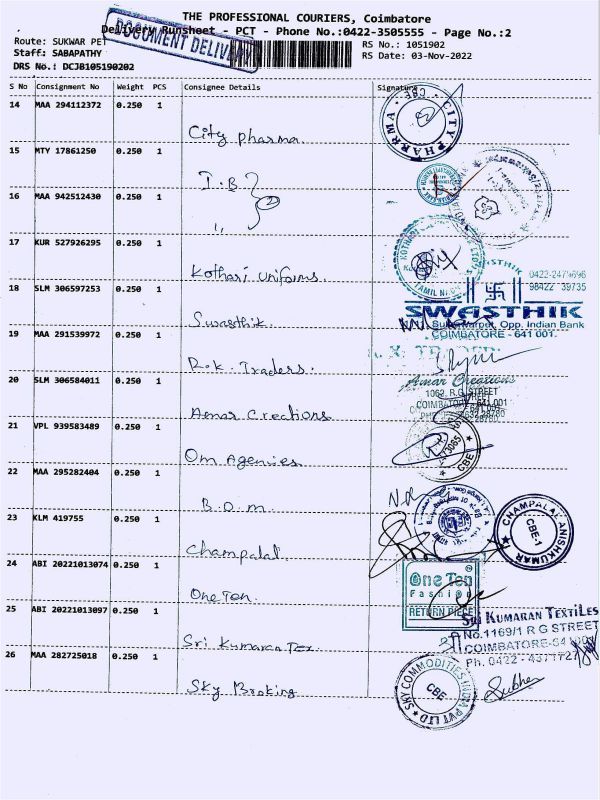 THE PROFESSIONAL COURIERS, Coimbatore
Delivery Runsheet - PCT - Phone No.:0422-3505555 - Page No.:2
DOCUMENT DELIVERY
Route: SUKWAR PET
RS No.: 1051902
Staff: SABAPATHY
RS Date: 03-Nov-2022
DRS No.: DCJB105190202
S No Consignment No Weight PCS Consignee Details Signature
14 MAA 294112372 0.250 1
City pharma
CITY PHARMA CBE
15 MTY 17861250 0.250 1
I.B
16 MAA 942512430 0.250 1
17 KUR 527926295 0.250 1
Kothari Uniforms
TAMIL
18 SLM 306597253 0.250 1
SWASTHIK
0422-2479696
98422 39735
SWASTHIK
Sukrawarpet, Opp. Indian Bank
COIMBATORE - 641 001.
Swasthik
19 MAA 291539972 0.250 1
R.K. Traders.
20 SLM 306584011 0.250 1
Amar Creations
1062, R.G. STREET
COIMBATORE - 641 001
Amar Creations
21 VPL 939583489 0.250 1
Om Agencies
CBE
22 MAA 295282404 0.250 1
B.O.M
23 KLM 419755 0.250 1
Champalal
CHAMPALAL ANISHKUMAR
CBE-1
24 ABI 20221013074 0.250 1
One Ten
One Ten
Fashion
RETURN PIECE
25 ABI 20221013097 0.250 1
Sri Kumaran Tex.
SRI KUMARAN TEXTILES
No.1169/1 R G STREET
COIMBATORE-641001
Ph. 0422 - 4371727
26 MAA 282725018 0.250 1
Sky Broking
SKY COMMODITIES INDIA PVT LTD
CBE